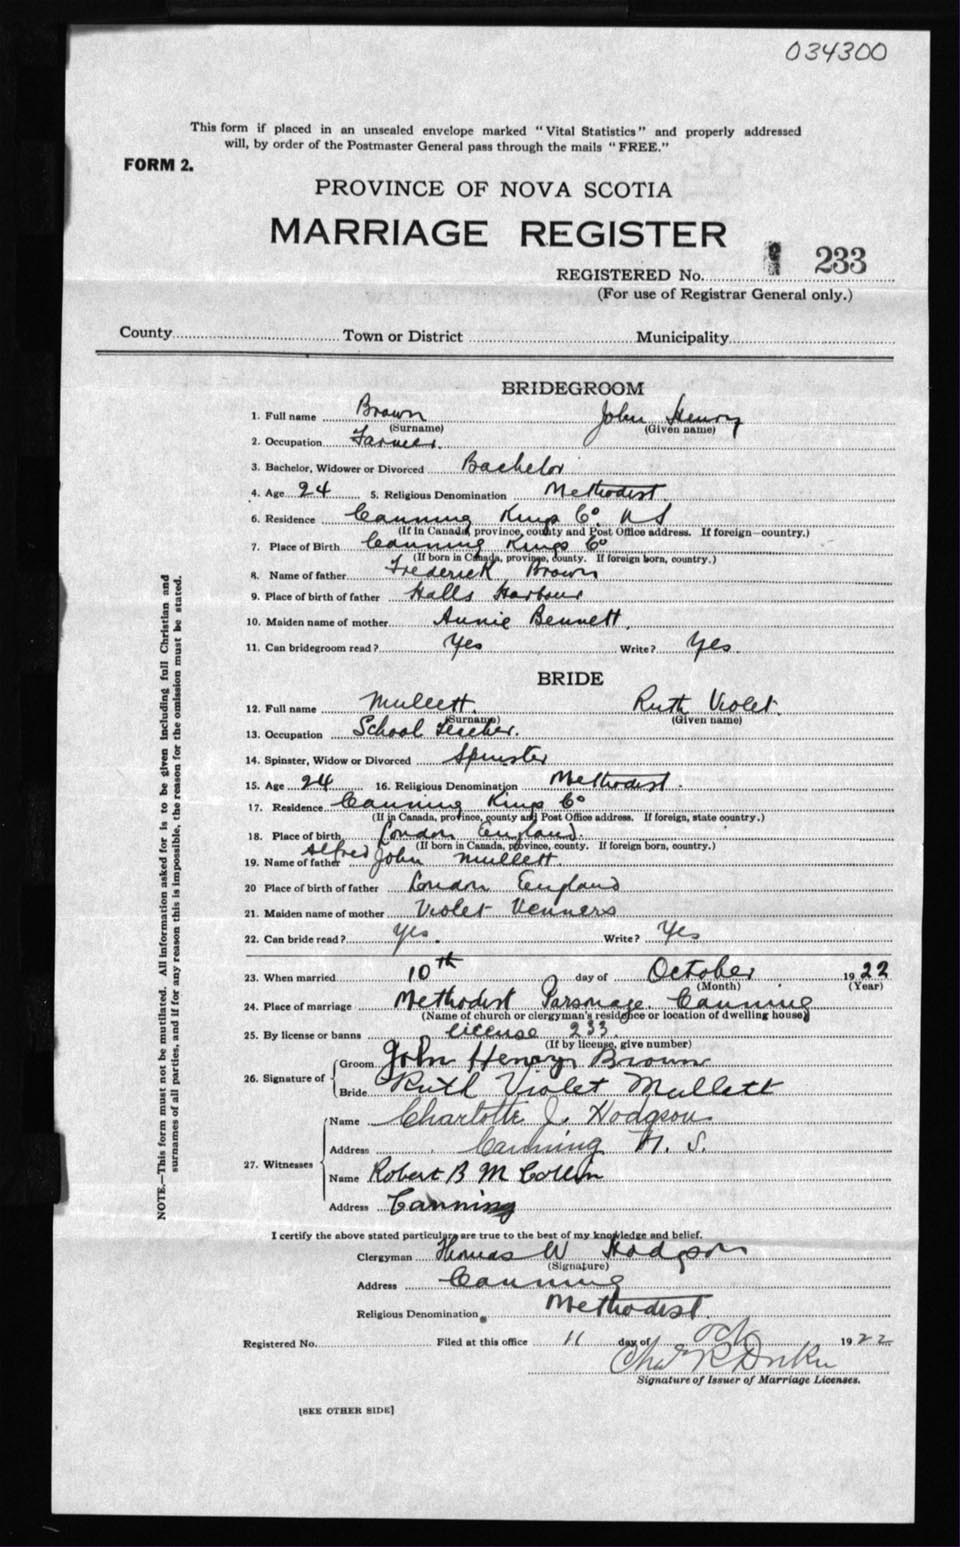 034300
This form if placed in an unsealed envelope marked "Vital Statistics" and properly addressed
will, by order of the Postmaster General pass through the mails "FREE."
FORM 2.
PROVINCE OF NOVA SCOTIA
MARRIAGE REGISTER
REGISTERED No. 233
(For use of Registrar General only.)
County Town or District Municipality
BRIDEGROOM
1. Full name Brown John Henry
(Surname) (Given name)
2. Occupation Farmer.
3. Bachelor, Widower or Divorced Bachelor
4. Age 24 5. Religious Denomination Methodist
6. Residence Canning Kings Co. NS
(If in Canada, province, county and Post Office address. If foreign—country.)
7. Place of Birth Canning Kings Co
(If born in Canada, province, county. If foreign born, country.)
8. Name of father Frederick Brown
9. Place of birth of father Halls Harbour
10. Maiden name of mother Annie Bennett.
11. Can bridegroom read? Yes Write? Yes
BRIDE
12. Full name Mullett. Ruth Violet.
(Surname) (Given name)
13. Occupation School Teacher.
14. Spinster, Widow or Divorced Spinster
15. Age 24 16. Religious Denomination Methodist.
17. Residence Canning Kings Co
(If in Canada, province, county and Post Office address. If foreign, state country.)
18. Place of birth London England.
(If born in Canada, province, county. If foreign born, country.)
19. Name of father Alfred John Mullett.
20 Place of birth of father London England
21. Maiden name of mother Violet Venners
22. Can bride read? Yes. Write? Yes
23. When married 10th day of October 1922
(Month) (Year)
24. Place of marriage Methodist Parsonage Canning
(Name of church or clergyman's residence or location of dwelling house)
25. By license or banns license 233
(If by license, give number)
26. Signature of
Groom John Henry Brown
Bride Ruth Violet Mullett
27. Witnesses
Name Charlotte J. Hodgson
Address Canning N. S.
Name Robert B
Address Canning
I certify the above stated particulars are true to the best of my knowledge and belief.
Clergyman Thomas W Hodgson
(Signature)
Address Canning
Religious Denomination Methodist.
Registered No. Filed at this office 11 day of Oct 1922
Signature of Issuer of Marriage Licenses.
[SEE OTHER SIDE]
NOTE.—This form must not be mutilated. All information asked for is to be given including full Christian and
surnames of all parties, and if for any reason this is impossible, the reason for the omission must be stated.